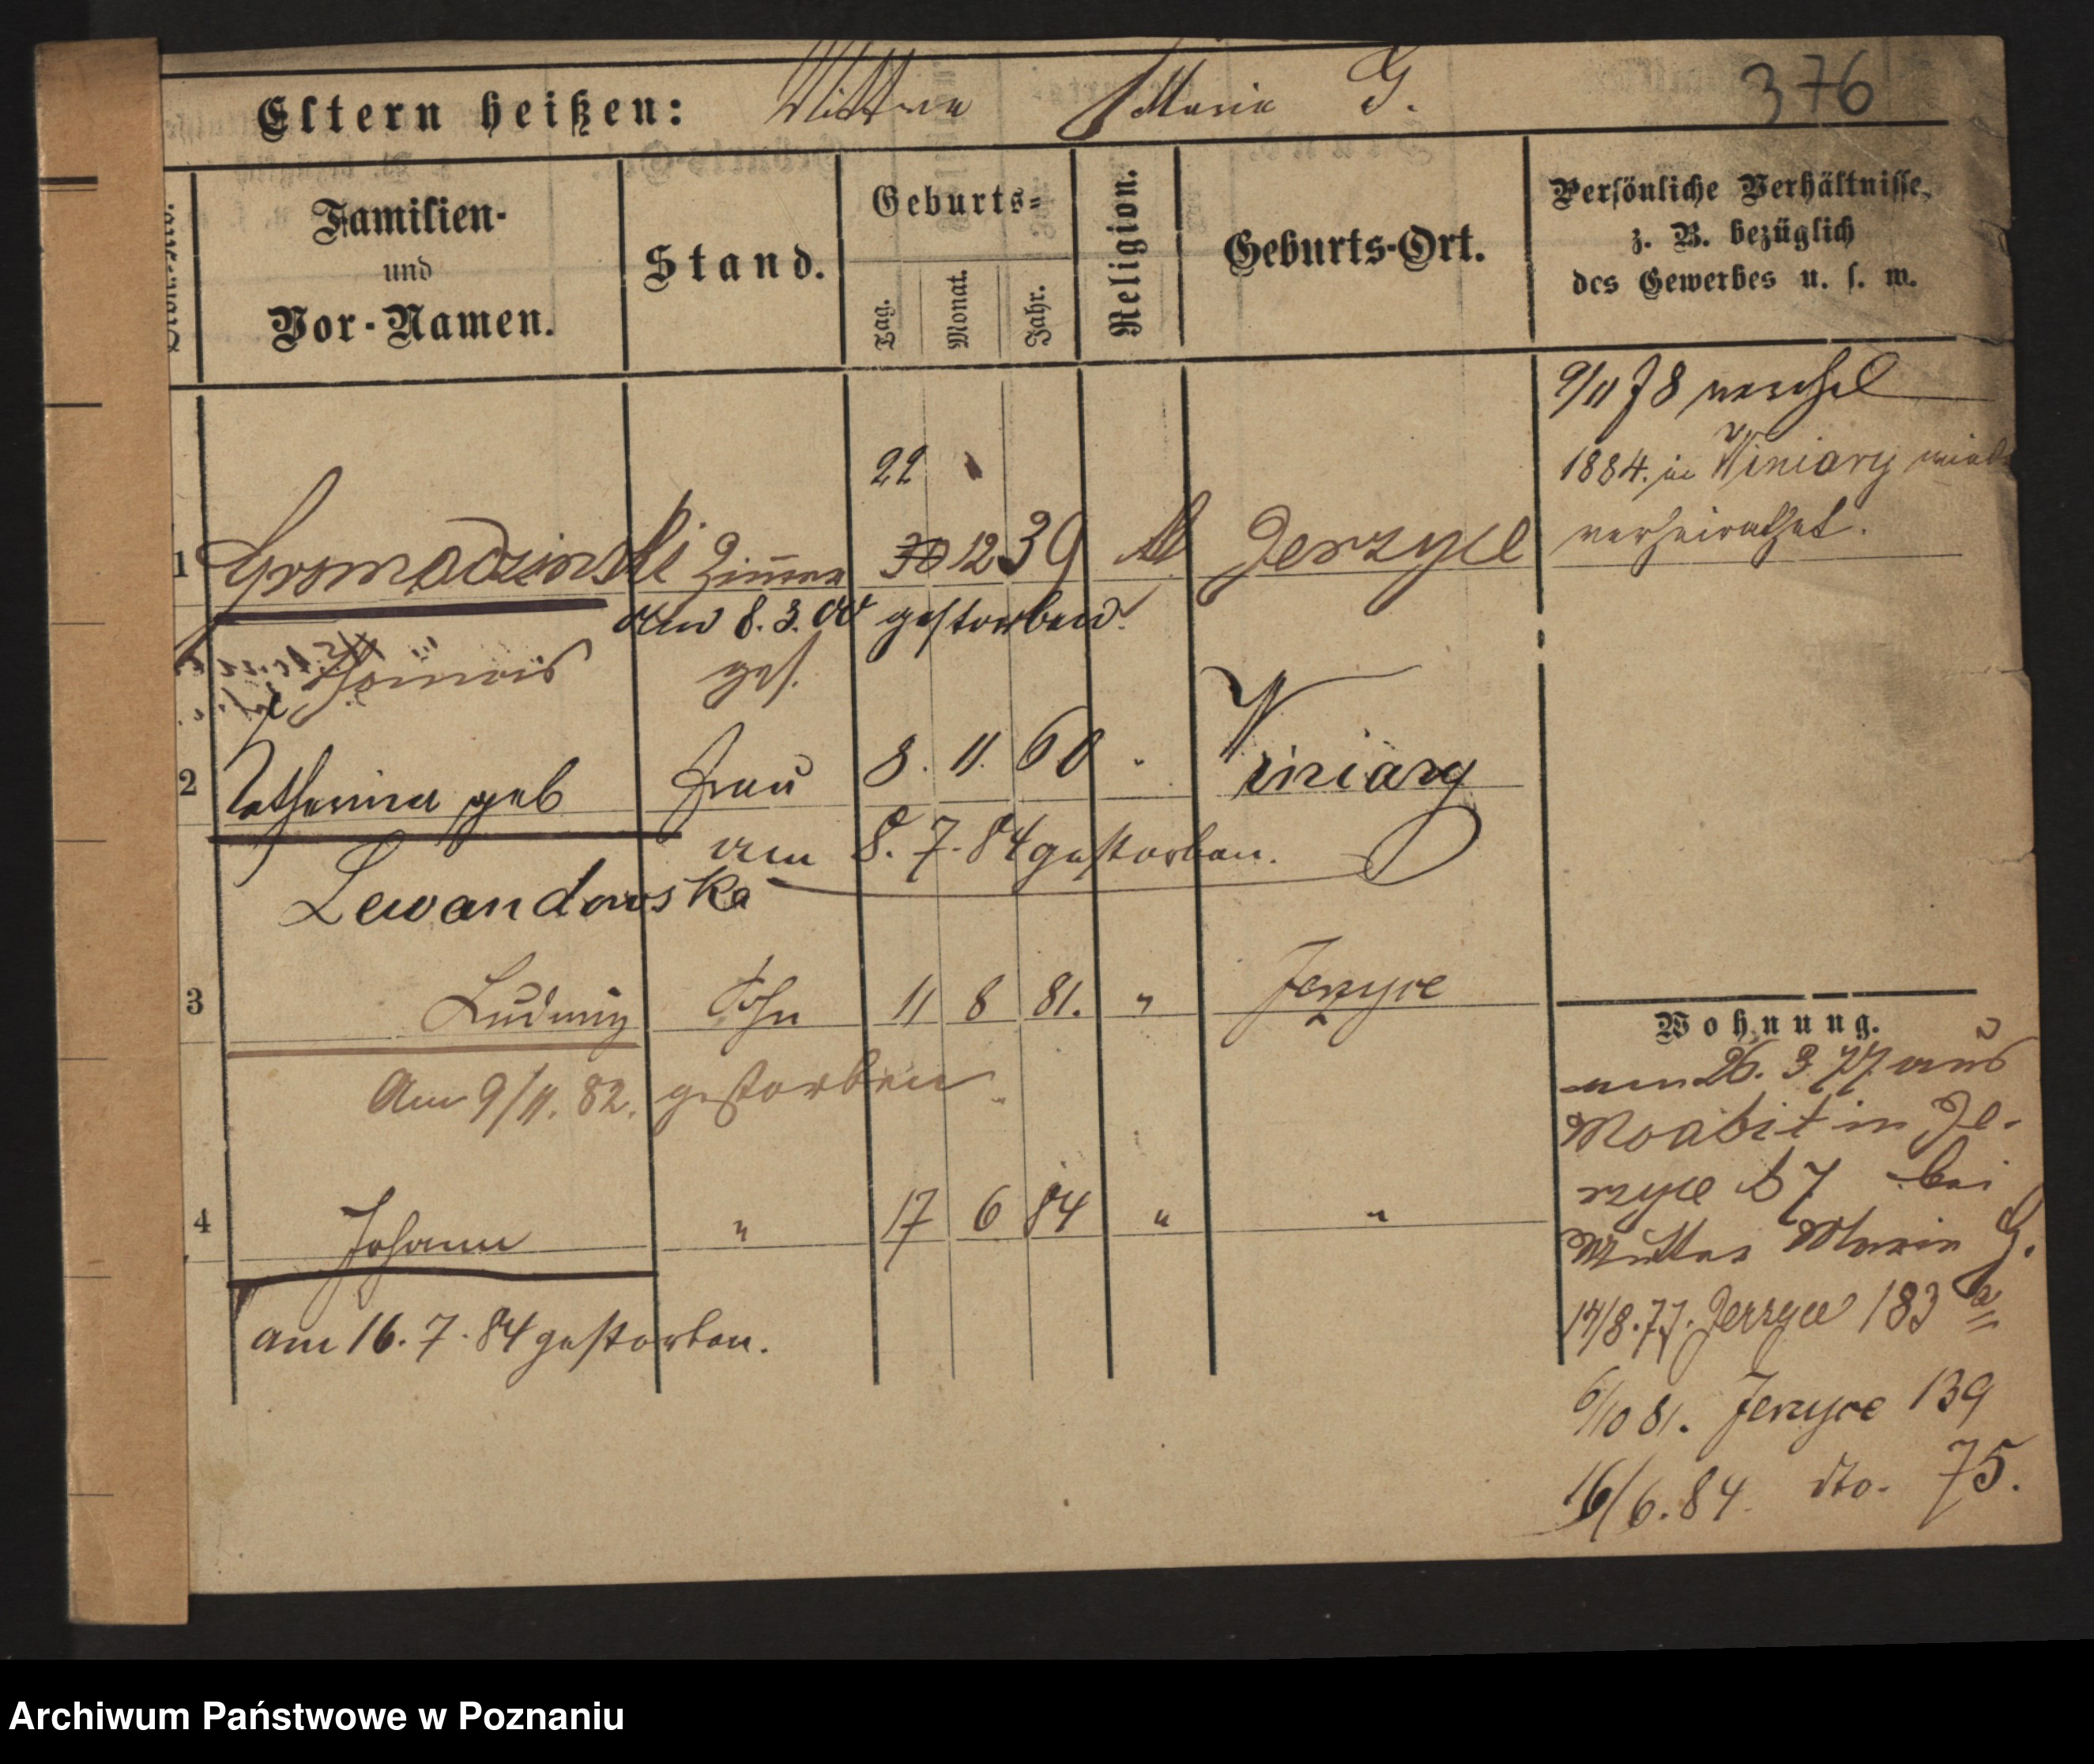 376
Eltern heißen: Wittwe Maria G.
Familien-
und
Vor-Namen.
Stand.
Geburts-
Tag.
Monat.
Jahr.
Religion.
Geburts-Ort.
Persönliche Verhältnisse,
z. B. bezüglich
des Gewerbes u. s. w.
9/11 78
1884. in Winiary
verheirathet.
22
1 Gromadzinski Zimmer 30 12 39 Jerzyce
am 8. 3. 00 gestorben.
ges.
2 Catharina geb Frau 8. 11. 60 " Winiary
am 8. 7. 84 gestorben.
Lewandowska
3 Ludwig Sohn 11 8 81. " Jerzyce
Am 9/11. 82. gestorben
4 Johann " 17 6 84 " "
am 16. 7. 84 gestorben.
Wohnung.
am 26. 3 77 aus
Moabit in Je-
rzyce 57 bei
Mutter Maria G.
14/8. 77. Jerzyce 183
6/10 81. Jerzyce 139
16/6. 84. dto. 75.
Archiwum Państwowe w Poznaniu